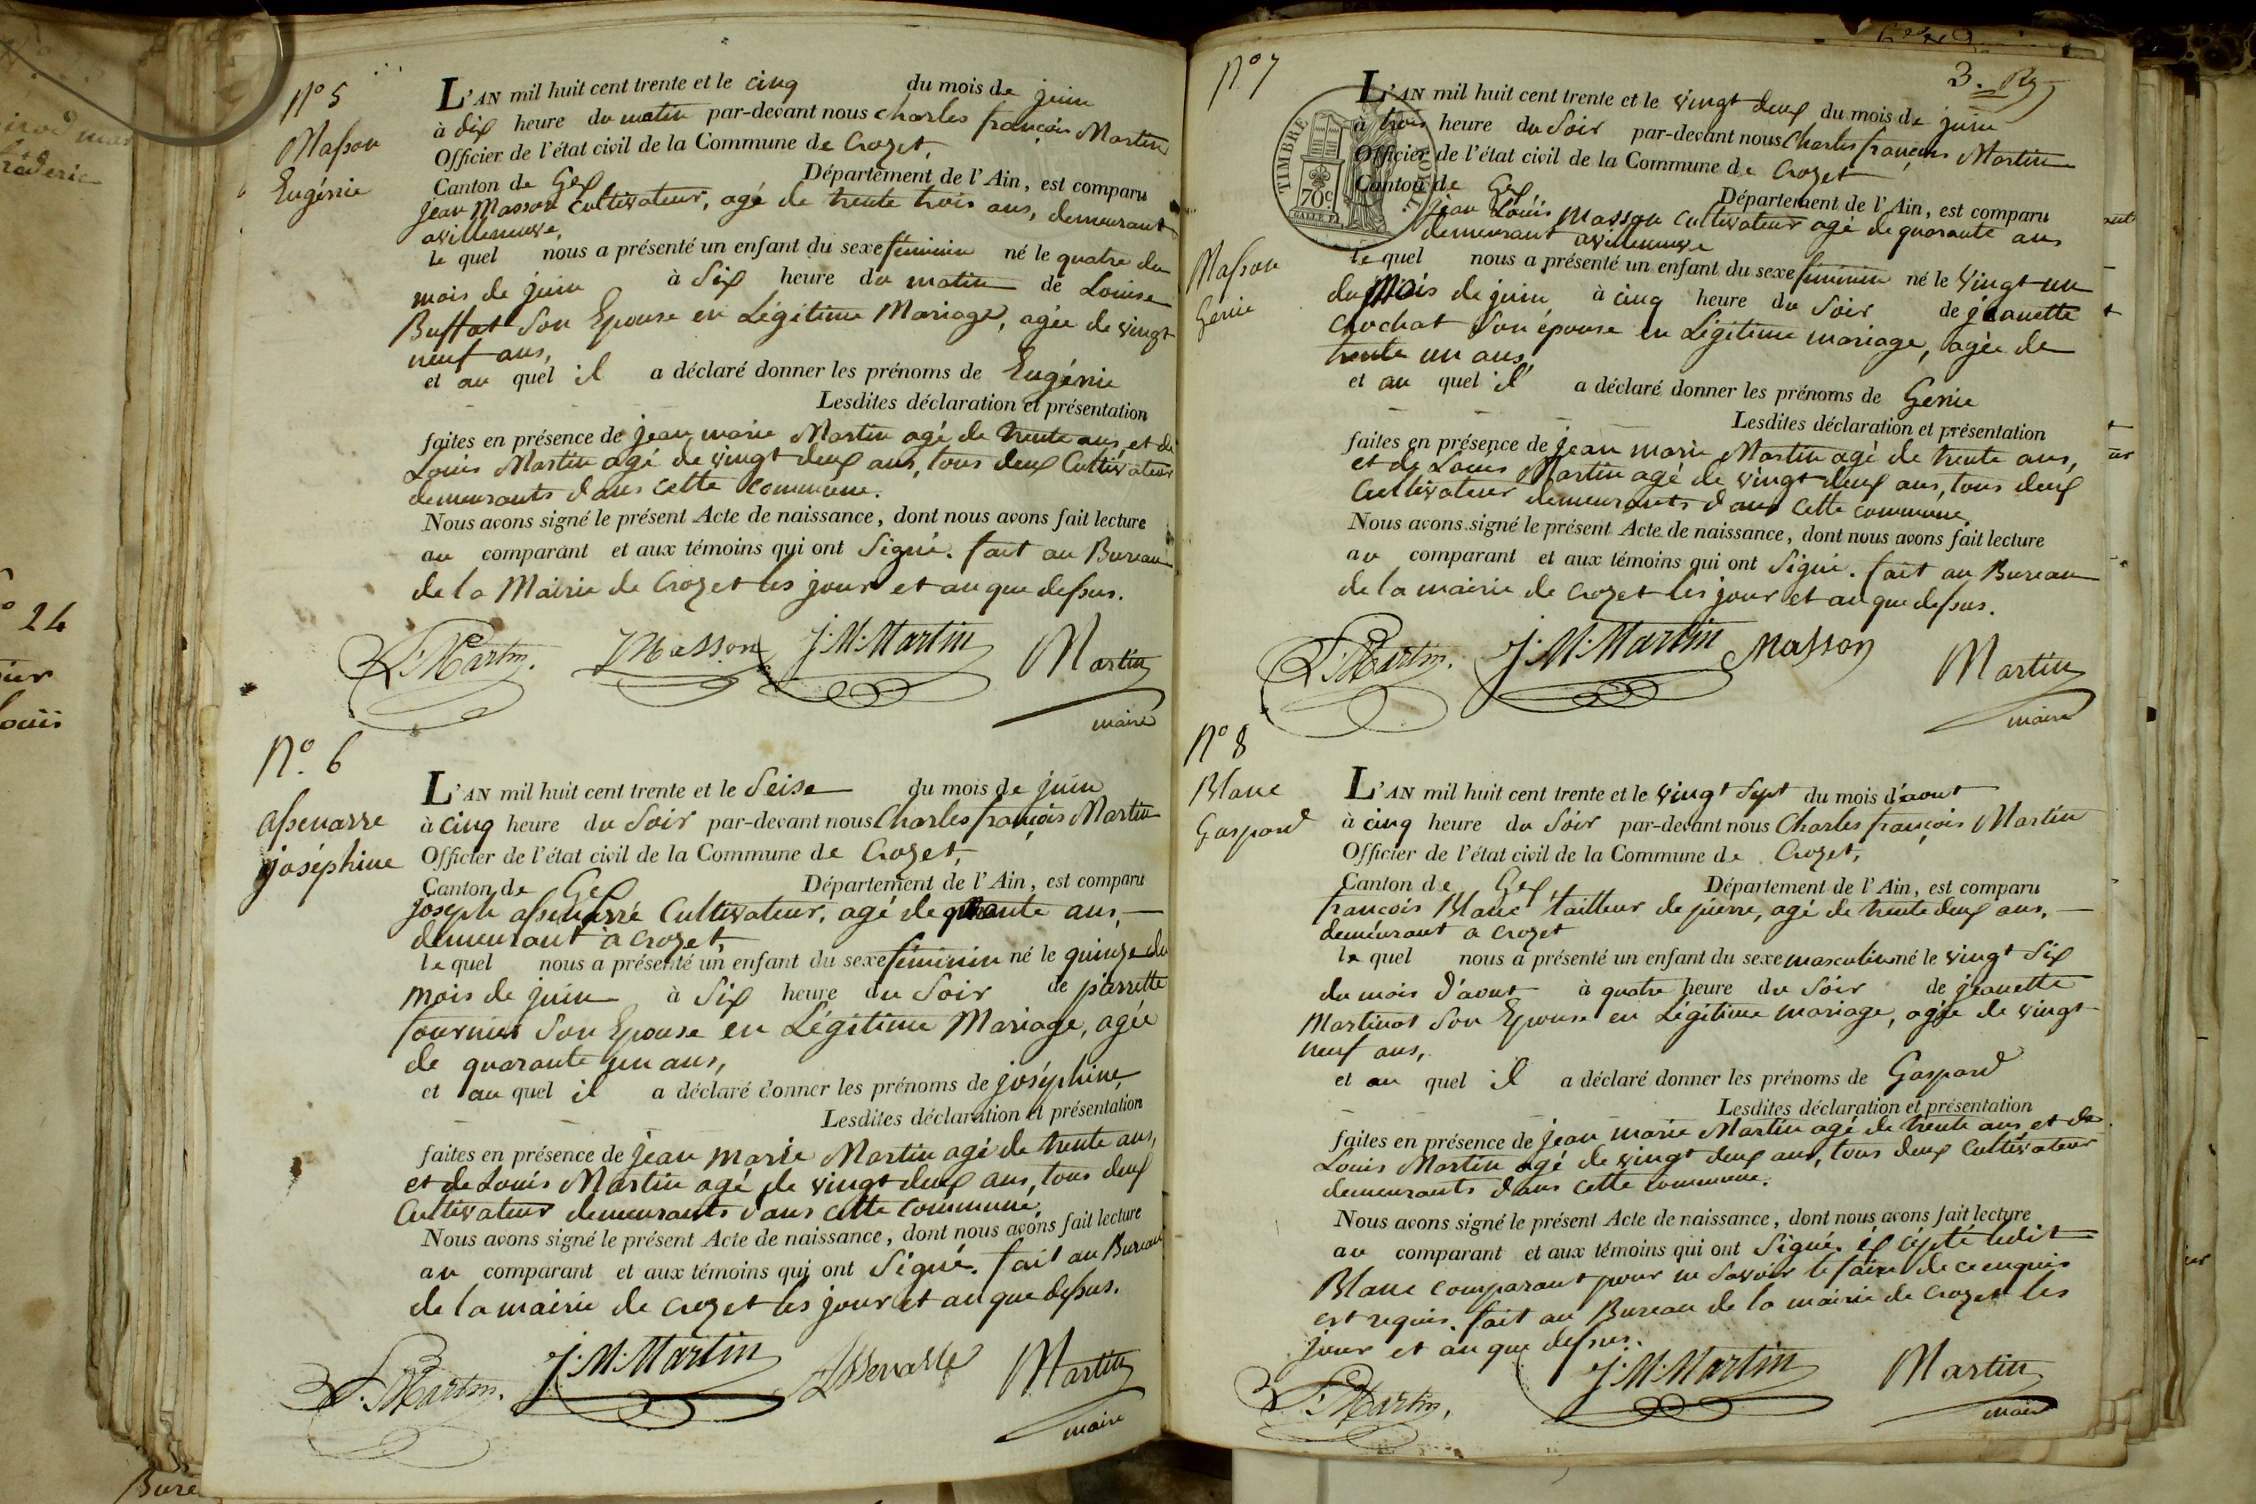 N° 5
Masson
Eugénie
L'AN mil huit cent trente et le cinq du mois de juin
à dix heure du matin par-devant nous charles françois Martin
Officier de l'état civil de la Commune de Crozet,
Canton de Gex Département de l'Ain, est comparu
jean Masson Cultivateur, agé de trente trois ans, demeurant
avilleneuve,
le quel nous a présenté un enfant du sexe féminin né le quatre du
mois de juin à Six heure du matin de Louise
Buffat Son Epouse en Légitime Mariage, agée de vingt
neuf ans,
et au quel il a déclaré donner les prénoms de Eugénie
Lesdites déclaration et présentation
faites en présence de jean marie Martin agé de trente ans, et de
Louis Martin agé de vingt deux ans, tous deux Cultivateur
demeurants dans cette commune.
Nous avons signé le présent Acte de naissance, dont nous avons fait lecture
au comparant et aux témoins qui ont Signé. fait au Bureau
de la Mairie de Crozet les jour et an que dessus.
L. Martin. JMasson J. M. Martin Martin
maire
N°. 6
assenarre
joséphine
L'AN mil huit cent trente et le Seise du mois de juin
à cinq heure du Soir par-devant nous Charles françois Martin
Officier de l'état civil de la Commune de Crozet,
Canton de Gex Département de l'Ain, est comparu
joseph assenarré Cultivateur, agé de quarante ans,
demeurant à crozet,
le quel nous a présenté un enfant du sexe féminin né le quinze du
mois de juin à Six heure du Soir de pierrette
fournier Son Epouse en Légitime Mariage, agée
de quarante un ans,
et au quel il a déclaré donner les prénoms de joséphine
Lesdites déclaration et présentation
faites en présence de jean marie Martin agé de trente ans,
et de Louis Martin agé de vingt deux ans, tous deux
Cultivateur demeurants dans cette commune,
Nous avons signé le présent Acte de naissance, dont nous avons fait lecture
au comparant et aux témoins qui ont Signé. fait au Bureau
de la mairie de crozet les jour et an que dessus.
L. Martin. J. M. Martin Assenarre Martin
maire
N° 7
3.
TIMBRE ROYAL
70c.
Masson
Génie
L'AN mil huit cent trente et le vingt deux du mois de juin
à trois heure du Soir par-devant nous Charles françois Martin
Officier de l'état civil de la Commune de Crozet
Canton de Gex Département de l'Ain, est comparu
jean Louis Masson Cultivateur agé de quarante ans
demeurant avilleneuve
le quel nous a présenté un enfant du sexe féminin né le vingt un
du Mois de juin à cinq heure du Soir de jeanette
Crochat Son épouse en Légitime mariage, agée de
trente un ans,
et au quel il a déclaré donner les prénoms de Génie
Lesdites déclaration et présentation
faites en présence de jean marie Martin agé de trente ans,
et de Louis Martin agé de vingt deux ans, tous deux
Cultivateur demeurants dans cette commune,
Nous avons signé le présent Acte de naissance, dont nous avons fait lecture
au comparant et aux témoins qui ont Signé. fait au Bureau
de la mairie de crozet les jour et an que dessus.
L. Martin. J. M. Martin Masson Martin
maire
N° 8
Blanc
Gaspard
L'AN mil huit cent trente et le vingt Sept du mois d'aout
à cinq heure du Soir par-devant nous Charles françois Martin
Officier de l'état civil de la Commune de Crozet,
Canton de Gex, Département de l'Ain, est comparu
françois Blanc tailleur de pierre, agé de trente deux ans,
demeurant a crozet
le quel nous a présenté un enfant du sexe masculin né le vingt Six
du mois d'aout à quatre heure du Soir de jeanette
Martinat Son Epouse en Légitime mariage, agée de vingt
neuf ans,
et au quel il a déclaré donner les prénoms de Gaspard
Lesdites déclaration et présentation
faites en présence de jean marie Martin agé de trente ans et de
Louis Martin agé de vingt deux ans, tous deux Cultivateur
demeurants dans cette commune.
Nous avons signé le présent Acte de naissance, dont nous avons fait lecture
au comparant et aux témoins qui ont Signé, ex cepté ledit
Blanc comparant pour ne Savoir le faire de ce enquis
est requis. fait au Bureau de la mairie de Crozet les
jour et an que dessus.
L. Martin, J. M. Martin Martin
maire